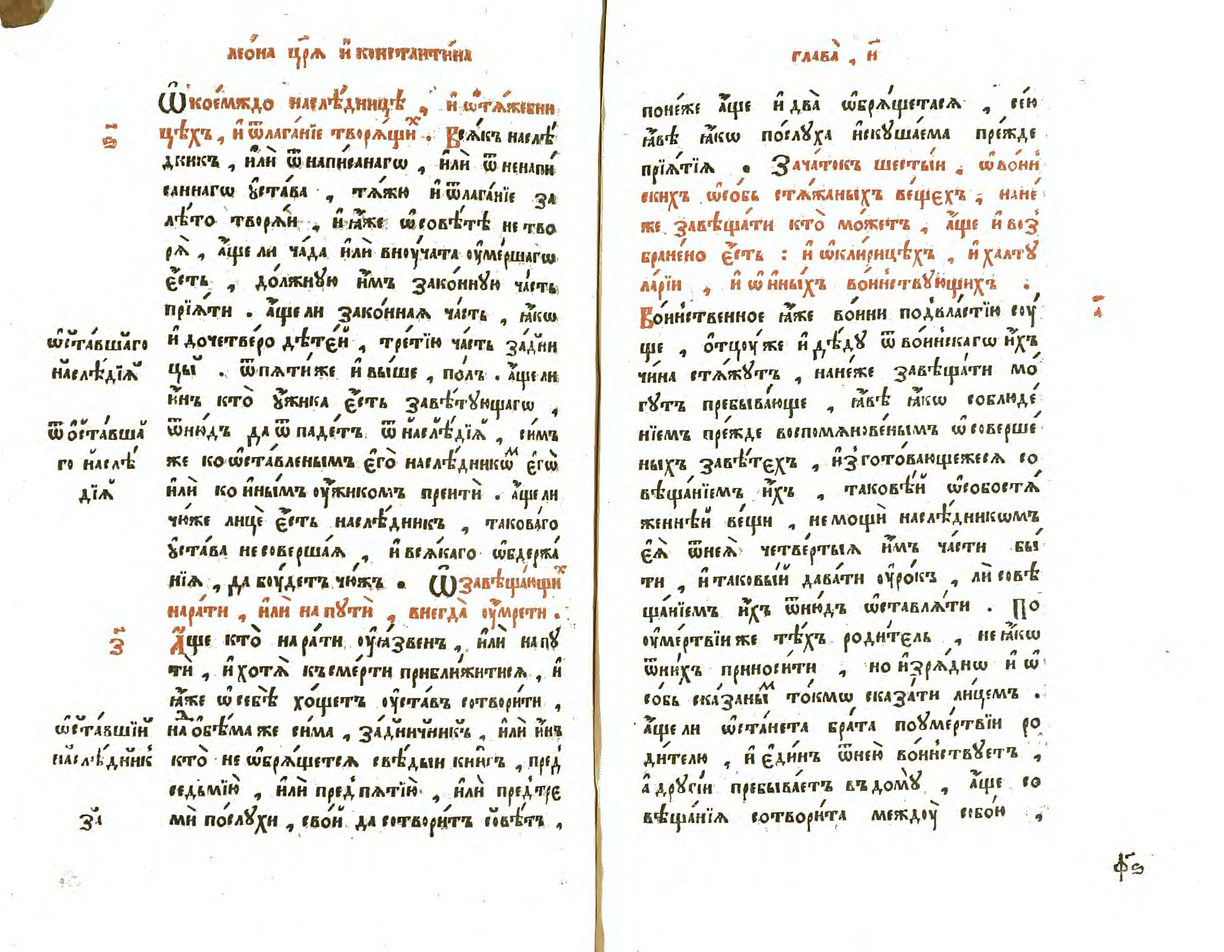 леѡ́на цр҃ѧ̀ и҆ константи́на
Ѡ҆ кое́мждо наслѣ́дницѣ , и҆ ѡ҆ тѧ́жебни
цѣхъ , и҆ ѿлага́нїе творѧ́щиⷯ .
Всѧ́къ наслѣ́
ѕ҃і
дникъ , и҆лѝ ѿ написанагѡ , и҆лѝ ѿ ненапи́
саннагѡ ᲂу҆ста́ва , тѧ́жю и҆ ѿлага́нїе за
лѣ́то творѧ́и , и҆ ꙗ҆́же ѡ҆ совѣ́тѣ не тво
рѧ̀ , а҆́ще ли ча́да и҆лѝ вноу́чата оу҆ме́ршагѡ
є҆́сть , до́лжную и҆̀мъ зако́нную ча́сть
прїѧ́ти . а҆́ще ли зако́ннаѧ ча́сть , ꙗ҆́кѡ
и҆ до че́тверо дѣте́й , тре́тїю ча́сть за́дни
цы̀ . ѿ пѧ́ти же и҆ вы́ше , по́лъ . а҆́ще ли
и҆́нъ кто̀ ᲂу҆́жика є҆́сть завѣ́тующагѡ ,
ѿню́дъ да ѿпаде́тъ ѿ наслѣ́дїѧ , си́мъ
же ко ѡ҆ста́вленымъ є҆го̀ наслѣ́дникѡⷨ є҆гѡ̀
и҆лѝ ко и҆ны́мъ оу҆́жикомъ преитѝ . а҆́ще ли
чю́же лицѐ є҆́сть наслѣ́дникъ , такова́го
ᲂу҆ста́ва не соверша́ѧ , и҆ всѧ́каго ѡ҆бдержа́
нїѧ , да боу́детъ чю́жъ .
Ѡ҆ завѣща́ющиⷯ
на ра́ти , и҆лѝ на путѝ , внегда̀ оу҆мре́ти .
з҃і
А҆́ще кто̀ на ра́ти оу҆ꙗ́звенъ , и҆лѝ на пу
тѝ , и҆ хотѧ̀ къ сме́рти прибли́житисѧ , и҆
ꙗ҆́же ѡ҆ себѣ̀ хо́щетъ оу҆ста́въ сотвори́ти ,
на ѻ҆бѣ́ма же си́ма , за́дничникъ , и҆лѝ и҆́нъ
кто̀ не ѡ҆брѧ́щетсѧ свѣ́дыи кни́гъ , пред
седьмїю̀ , и҆лѝ пред̾ пѧтїю̀ , и҆лѝ пред̾ тре
мѝ по́слухи , сво́й да сотвори́тъ совѣ́тъ ,
ѡ҆ста́вшаго
наслѣ́дїѧ
ѿ ѻ҆ста́вша
го наслѣ́
дїѧ
ѡ҆ста́вшїи
наслѣ́дник̾
за҃
глава̀ , н҃і
поне́же а҆́ще и҆ два̀ ѡ҆брѧ́щетасѧ , сею̀
ꙗ҆́вѣ ꙗ҆́кѡ по́слуха и҆скуша́ема пре́жде
прїѧ́тїѧ .
Зача́токъ шесты́и . ѡ҆ во́ин
скихъ ѡ҆со́бь стѧ́жаныхъ ве́щехъ , на не́
же завѣща́ти кто̀ мо́жетъ , а҆́ще и҆ воз̾
бране́но є҆́сть : и҆ ѡ҆ кли́рицѣхъ , и҆ халту
ла́рїи , и҆ ѡ҆ и҆ны́хъ во́инствующихъ .
а҃
Во́инственное ꙗ҆́же во́ини под̾ вла́стїю соу́
ще , ѻ҆тцоу́ же и҆ дѣ́ду ѿ во́инскагѡ и҆́хъ
чи́на стѧ́жутъ , на не́же завѣща́ти мо́
гутъ пребыва́юще , ꙗ҆́вѣ ꙗ҆́кѡ соблюде́
нїемъ пре́жде воспомѧнове́нымъ ѡ҆ соверше́
ныхъ завѣ́техъ , и҆зготова́ющежесѧ со
вѣща́нїемъ и҆́хъ , таковѣ́й ѡ҆собостѧ́
женнѣй ве́щи , не мощѝ наслѣ́дникѡмъ
є҆ѧ̀ ѿ неѧ̀ четве́ртыѧ и҆́мъ ча́сти бы́
ти , и҆ таковы́й дава́ти оу҆ро́къ , ли совѣ
ща́нїемъ и҆́хъ ѿню́дъ ѡ҆ставлѧ́ти . По
оу҆ме́ртвїи же тѣ́хъ роди́тель , не ꙗ҆́кѡ
ѿ ни́хъ приноси́ти , но и҆зрѧ́днѡ и҆ ѡ҆
со́бь ска́заныⷨ то́кмѡ сказа́ти лице́мъ .
а҆́ще ли ѡ҆ста́нета бра́та по оу҆ме́ртвїи ро
ди́телю , и҆ є҆ди́нъ ѿ нею̀ во́инствуетъ ,
а҆ другі́и пребыва́етъ в дому̀ , а҆́ще со
вѣща́нїѧ сотвори́та междоу̀ собо́ю ,
ф҃ѕ